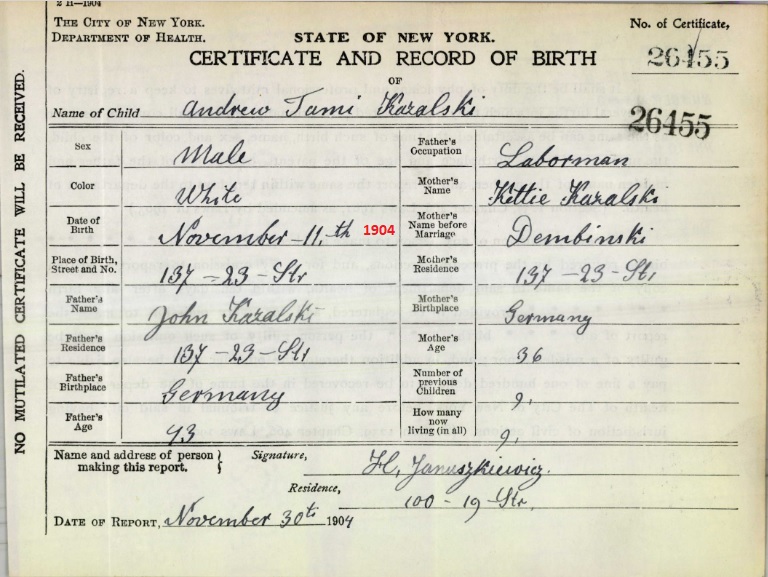 2 II—1904
THE CITY OF NEW YORK.
DEPARTMENT OF HEALTH.
No. of Certificate,
26455
STATE OF NEW YORK.
CERTIFICATE AND RECORD OF BIRTH
OF
Name of Child Andrew Tami Kazalski
26455
Sex Male
Father's Occupation Laborman
Color White
Mother's Name Kettie Kazalski
Date of Birth November - 11. th 1904
Mother's Name before Marriage Dembinski
Place of Birth, Street and No. 137 - 23 - Str
Mother's Residence 137 - 23 - Str
Father's Name John Kazalski
Mother's Birthplace Germany
Father's Residence 137 - 23 - Str
Mother's Age 36
Father's Birthplace Germany
Number of previous Children 9,
Father's Age 43
How many now living (in all) 9,
Name and address of person making this report.
Signature, H, Januszkiewicz.
Residence, 100 - 19 - Str,
DATE OF REPORT, November 30th 1904
NO MUTILATED CERTIFICATE WILL BE RECEIVED.